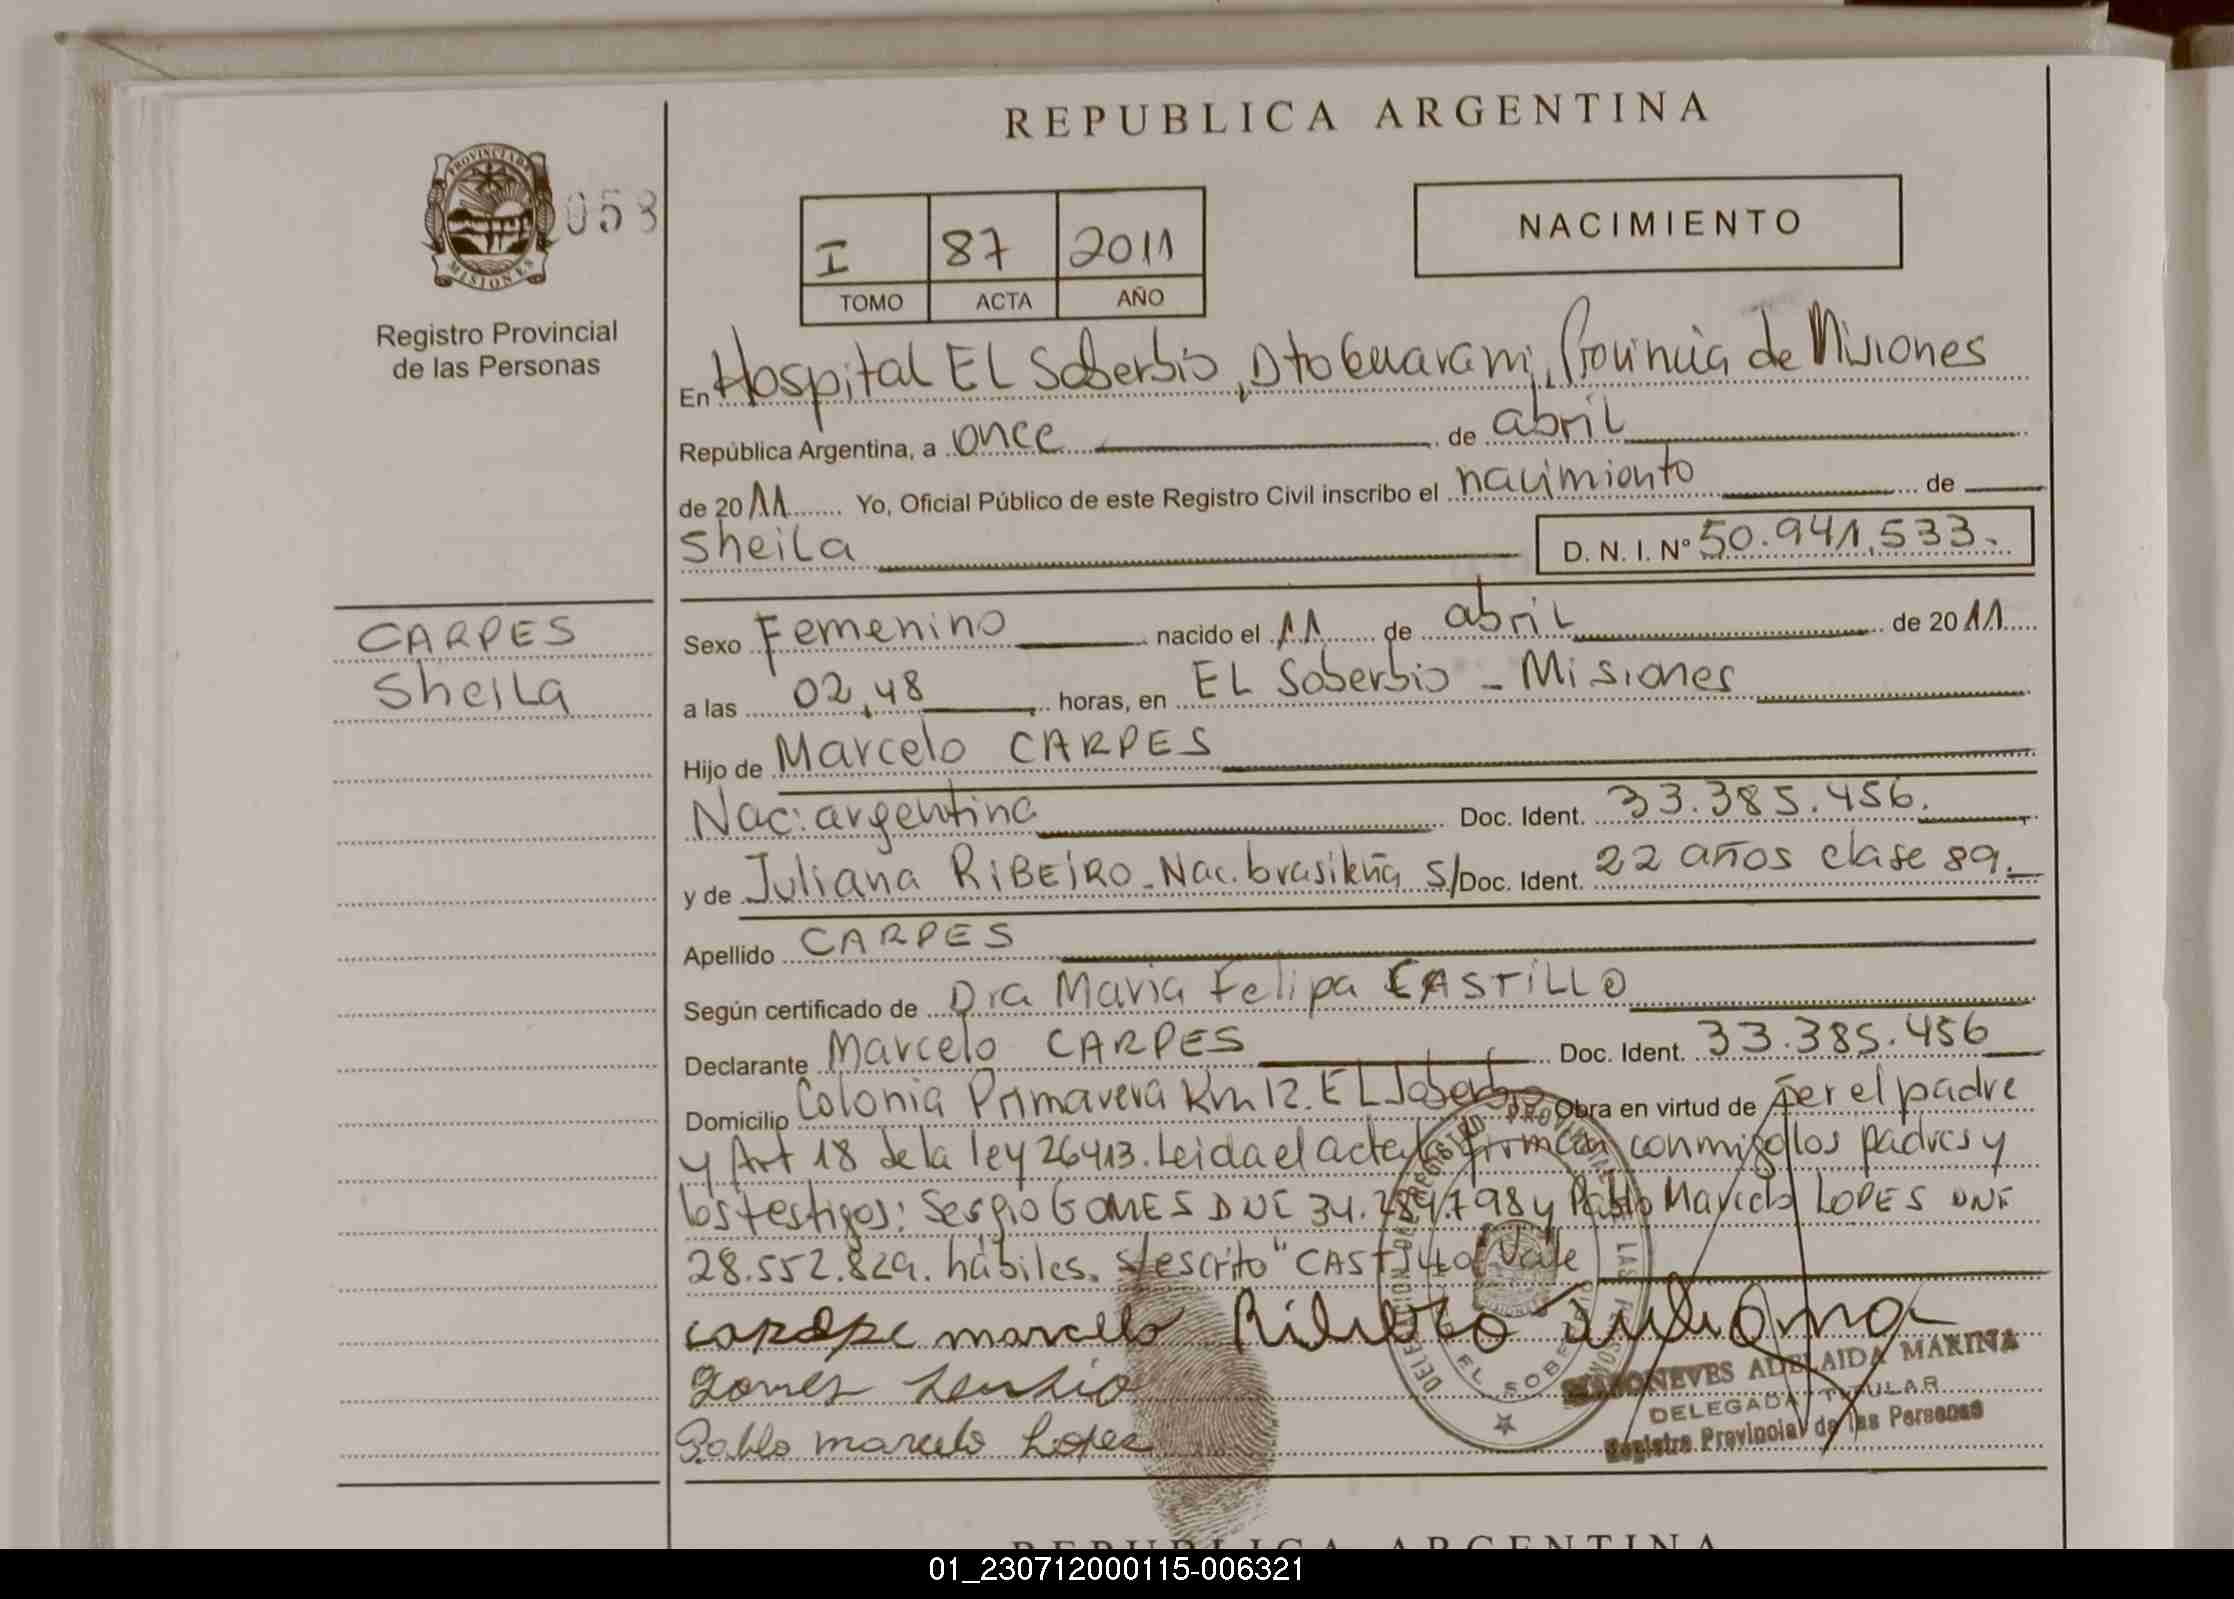 REPUBLICA ARGENTINA
PROVINCIA DE
MISIONES
058
Registro Provincial
de las Personas
I 87 2011
TOMO ACTA AÑO
NACIMIENTO
En Hospital EL Soberbio, Dto Guarani, Provincia de Misiones
República Argentina, a once de abril
de 2011 Yo, Oficial Público de este Registro Civil inscribo el nacimiento de
Sheila D. N. I. Nº 50.941.533.
CARPES
Sheila
Sexo Femenino nacido el 11 de abril de 2011
a las 02,48 horas, en EL Soberbio - Misiones
Hijo de Marcelo CARPES
Nac: argentina Doc. Ident. 33.385.456.
y de Juliana RIBEIRO - Nac. brasileña S/Doc. Ident. 22 años clase 89.
Apellido CARPES
Según certificado de Dra Maria Felipa CASTILLO
Declarante Marcelo CARPES Doc. Ident. 33.385.456
Domicilio Colonia Primavera Km 12. EL Soberbio Obra en virtud de ser el padre
y Art 18 de la ley 26413. Leida el acta la firman conmigo los padres y
los testigos: Sergio GOMES DNI 34.289.798 y Pablo Marcelo LOPES DNI
28.552.829. hábiles. s/escrito "CASTILLO" Vale
carpe marcelo Ribeiro Juliana
Gomes Sergio
Pablo marcelo Lopez
EL SOBERBIO
ADELAIDA MARINA
DELEGADA TITULAR
Registro Provincial de las Personas
REPUBLICA ARGENTINA
01_230712000115-006321